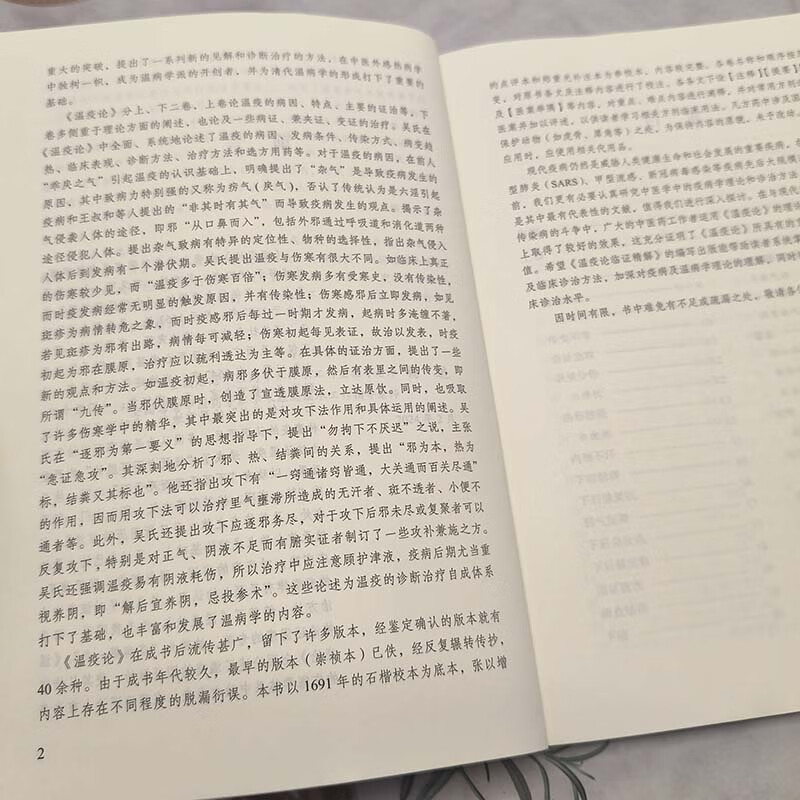 重大的突破，提出了一系列新的见解和诊断治疗的方法，在中医外感热病学
中独树一帜，成为温病学派的开创者，并为清代温病学的形成打下了重要的
基础。
《温疫论》分上、下二卷，上卷论温疫的病因、特点、主要的证治等，下
卷多侧重于理论方面的阐述，也论及一些病证、兼夹证、变证的治疗。吴氏在
《温疫论》中全面、系统地论述了温疫的病因、发病条件、传染方式、病变趋
势、临床表现、诊断方法、治疗方法和选方用药等。对于温疫的病因，在前人
“乖戾之气”引起温疫的认识基础上，明确提出了“杂气”是导致疫病发生的
原因，其中致病力特别强的又称为疠气（戾气），否认了传统认为是六淫引起
疫病和王叔和等人提出的“非其时有其气”而导致疫病发生的观点。揭示了杂
气侵袭人体的途径，即邪“从口鼻而入”，包括外邪通过呼吸道和消化道两种
途径侵犯人体。提出杂气致病有特异的定位性、物种的选择性，指出杂气侵入
人体后到发病有一个潜伏期。吴氏提出温疫与伤寒有很大不同。如临床上真正
的伤寒较少见，而“温疫多于伤寒百倍”；伤寒发病多有受寒史，没有传染性，
而时疫发病经常无明显的触发原因，并有传染性；伤寒感邪后立即发病，如见
斑疹为病情转危之象，而时疫感邪后每过一时期才发病，起病时多淹缠不著，
若见斑疹为邪有出路，病情每可减轻；伤寒初起每见表证，故治以发表，时疫
初起为邪在膜原，治疗应以疏利透达为主等。在具体的证治方面，提出了一些
新的观点和方法。如温疫初起，病邪多伏于膜原，然后有表里之间的传变，即
所谓“九传”。当邪伏膜原时，创造了宣透膜原法，立达原饮。同时，也吸取
了许多伤寒学中的精华，其中最突出的是对攻下法作用和具体运用的阐述。吴
氏在“逐邪为第一要义”的思想指导下，提出“勿拘下不厌迟”之说，主张
“急证急攻”。其深刻地分析了邪、热、结粪间的关系，提出“邪为本，热为
标，结粪又其标也”。他还指出攻下有“一窍通诸窍皆通，大关通而百关尽通”
的作用，因而用攻下法可以治疗里气壅滞所造成的无汗者、斑不透者、小便不
通者等。此外，吴氏还提出攻下应逐邪务尽，对于攻下后邪未尽或复聚者可以
反复攻下，特别是对正气、阴液不足而有腑实证者制订了一些攻补兼施之方。
吴氏还强调温疫易有阴液耗伤，所以治疗中应注意顾护津液，疫病后期尤当重
视养阴，即“解后宜养阴，忌投参术”。这些论述为温疫的诊断治疗自成体系
打下了基础，也丰富和发展了温病学的内容。
《温疫论》在成书后流传甚广，留下了许多版本，经鉴定确认的版本就有
40余种。由于成书年代较久，最早的版本（崇祯本）已佚，经反复辗转传抄，
内容上存在不同程度的脱漏衍误。本书以1691年的石楷校本为底本，张以增
2
的点评本和郑重光补注本为参校本，内容较完整。各卷名称和顺序按
变，对原书各文及注释内容进行了校注。各条文下设【注释】【提要】
及【医案举隅】等内容，对重点、难点内容进行阐释，并对常用方剂
医案并加以评述，以供读者学习相关方剂临床用法。凡方药中涉及国
保护动物（如虎骨、犀角等）之处，为保持内容的原貌，未予改动。
应用时，应使用相关代用品。
现代疫病仍然是威胁人类健康生命和社会发展的重要疾病，
型肺炎（SARS）、甲型流感、新冠病毒感染等疫病先后大规模
前，我们更有必要认真研究中医学中的疫病学理论和诊治方法
是其中最有代表性的文献，值得我们进行深入探讨。在与现代
传染病的斗争中，广大的中医药工作者运用《温疫论》的理论
上取得了较好的效果，这充分证明了《温疫论》所具有的
值。希望《温疫论临证精解》的编写出版能带动读者系统
及临床诊治方法，加深对疫病及温病学理论的理解，同时
床诊治水平。
因时间有限，书中难免有不足或疏漏之处，敬请各